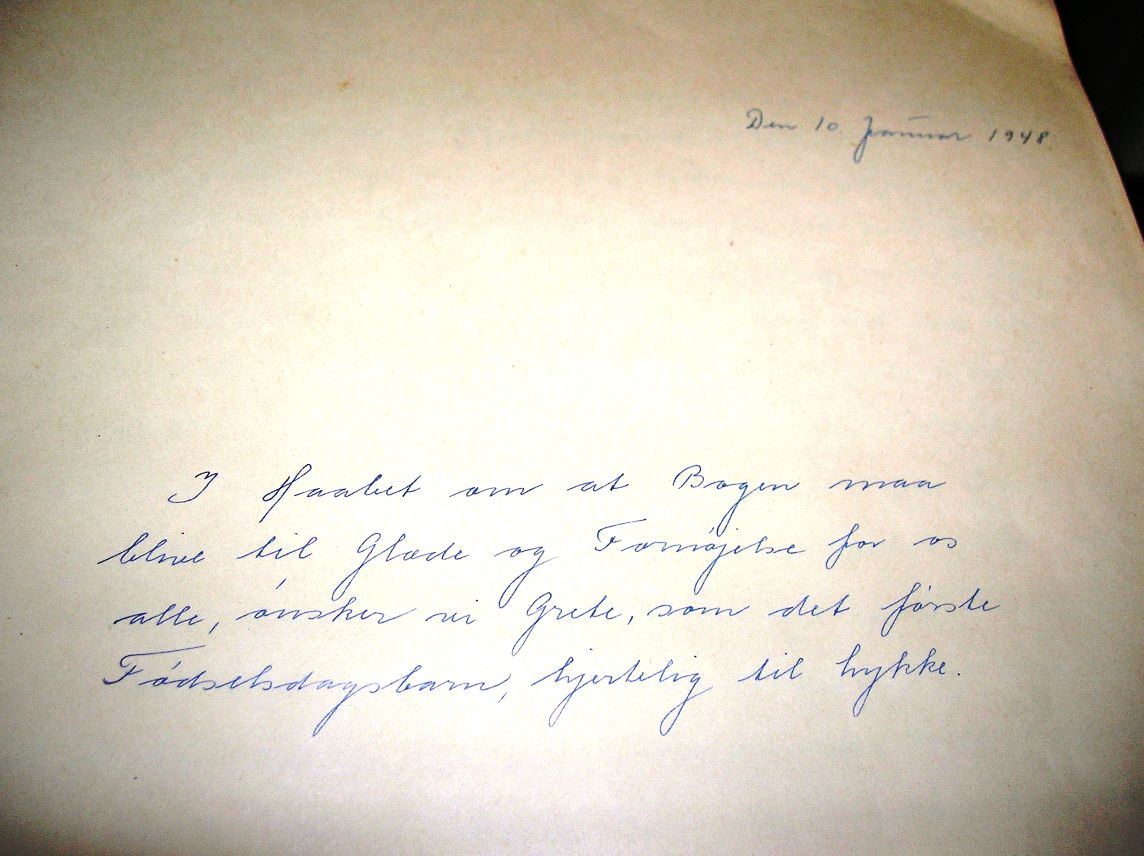 Den 10. Januar 1948.
I Haabet om at Bogen maa
blive til Glæde og Fornøjelse for os
alle, ønsker vi Grete, som det første
Fødselsdagsbarn, hjertelig til Lykke.